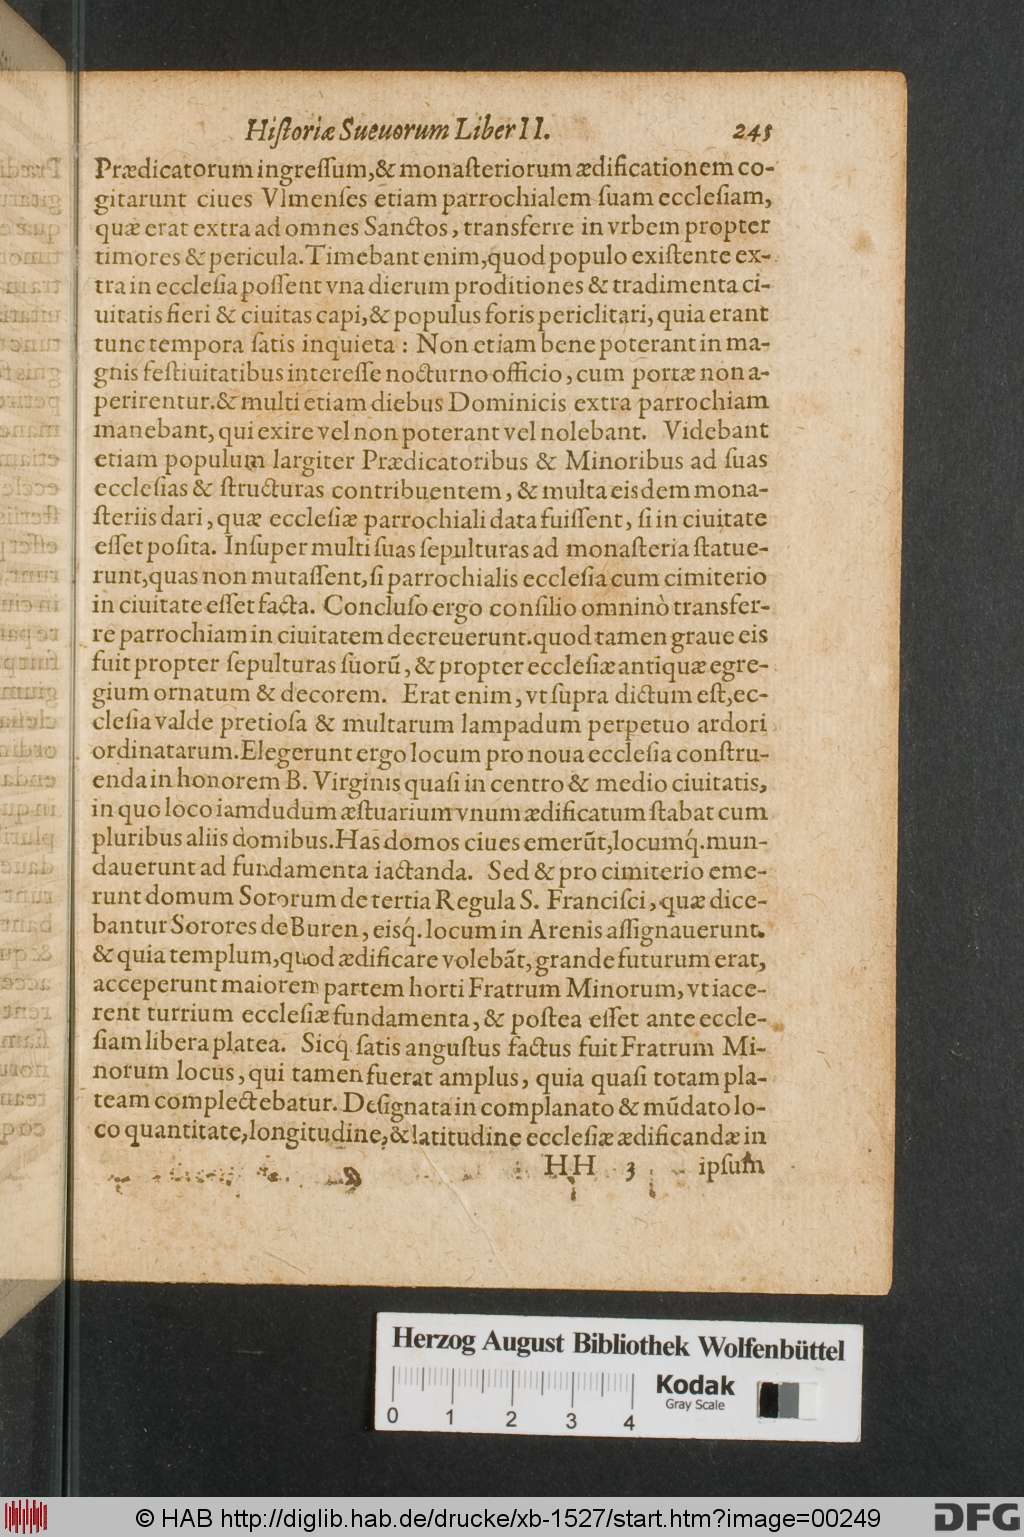 Hiſtoriæ Sueuorum Liber II. 245
Prædicatorum ingreſſum,& monaſteriorum ædificationem co-
gitarunt ciues Vlmenſes etiam parrochialem ſuam eccleſiam,
quæ erat extra ad omnes Sanctos, transferre in vrbem propter
timores & pericula. Timebant enim, quod populo exiſtente ex-
tra in eccleſia poſſent vna dierum proditiones & tradimenta ci-
uitatis fieri & ciuitas capi, & populus foris periclitari, quia erant
tunc tempora ſatis inquieta : Non etiam bene poterant in ma-
gnis feſtiuitatibus intereſſe nocturno officio, cum portæ non a-
perirentur.& multi etiam diebus Dominicis extra parrochiam
manebant, qui exire vel non poterant vel nolebant. Videbant
etiam populum largiter Prædicatoribus & Minoribus ad ſuas
eccleſias & ſtructuras contribuentem, & multa eisdem mona-
ſteriis dari, quæ eccleſiæ parrochiali data fuiſſent, ſi in ciuitate
eſſet poſita. Inſuper multi ſuas ſepulturas ad monaſteria ſtatue-
runt, quas non mutaſſent, ſi parrochialis eccleſia cum cimiterio
in ciuitate eſſet facta. Concluſo ergo conſilio omninò transfer-
re parrochiam in ciuitatem decreuerunt. quod tamen graue eis
fuit propter ſepulturas ſuorũ, & propter eccleſiæ antiquæ egre-
gium ornatum & decorem. Erat enim, vt ſupra dictum eſt, ec-
cleſia valde pretioſa & multarum lampadum perpetuo ardori
ordinatarum. Elegerunt ergo locum pro noua eccleſia conſtru-
enda in honorem B. Virginis quaſi in centro & medio ciuitatis,
in quo loco iamdudum æſtuarium vnum ædificatum ſtabat cum
pluribus aliis domibus. Has domos ciues emerũt, locumq́. mun-
dauerunt ad fundamenta iactanda. Sed & pro cimiterio eme-
runt domum Sororum de tertia Regula S. Franciſci, quæ dice-
bantur Sorores de Buren, eisq́. locum in Arenis aſſignauerunt.
& quia templum, quod ædificare volebãt, grande futurum erat,
acceperunt maiorem partem horti Fratrum Minorum, vt iace-
rent turrium eccleſiæ fundamenta, & poſtea eſſet ante eccle-
ſiam libera platea. Sicq́ ſatis anguſtus factus fuit Fratrum Mi-
norum locus, qui tamen fuerat amplus, quia quaſi totam pla-
team complectebatur. Deſignata in complanato & mũdato lo-
co quantitate, longitudine, & latitudine eccleſiæ ædificandæ in
HH 3 ipſum
Herzog August Bibliothek Wolfenbüttel
0 1 2 3 4
Kodak
Gray Scale
© HAB http://diglib.hab.de/drucke/xb-1527/start.htm?image=00249
DFG